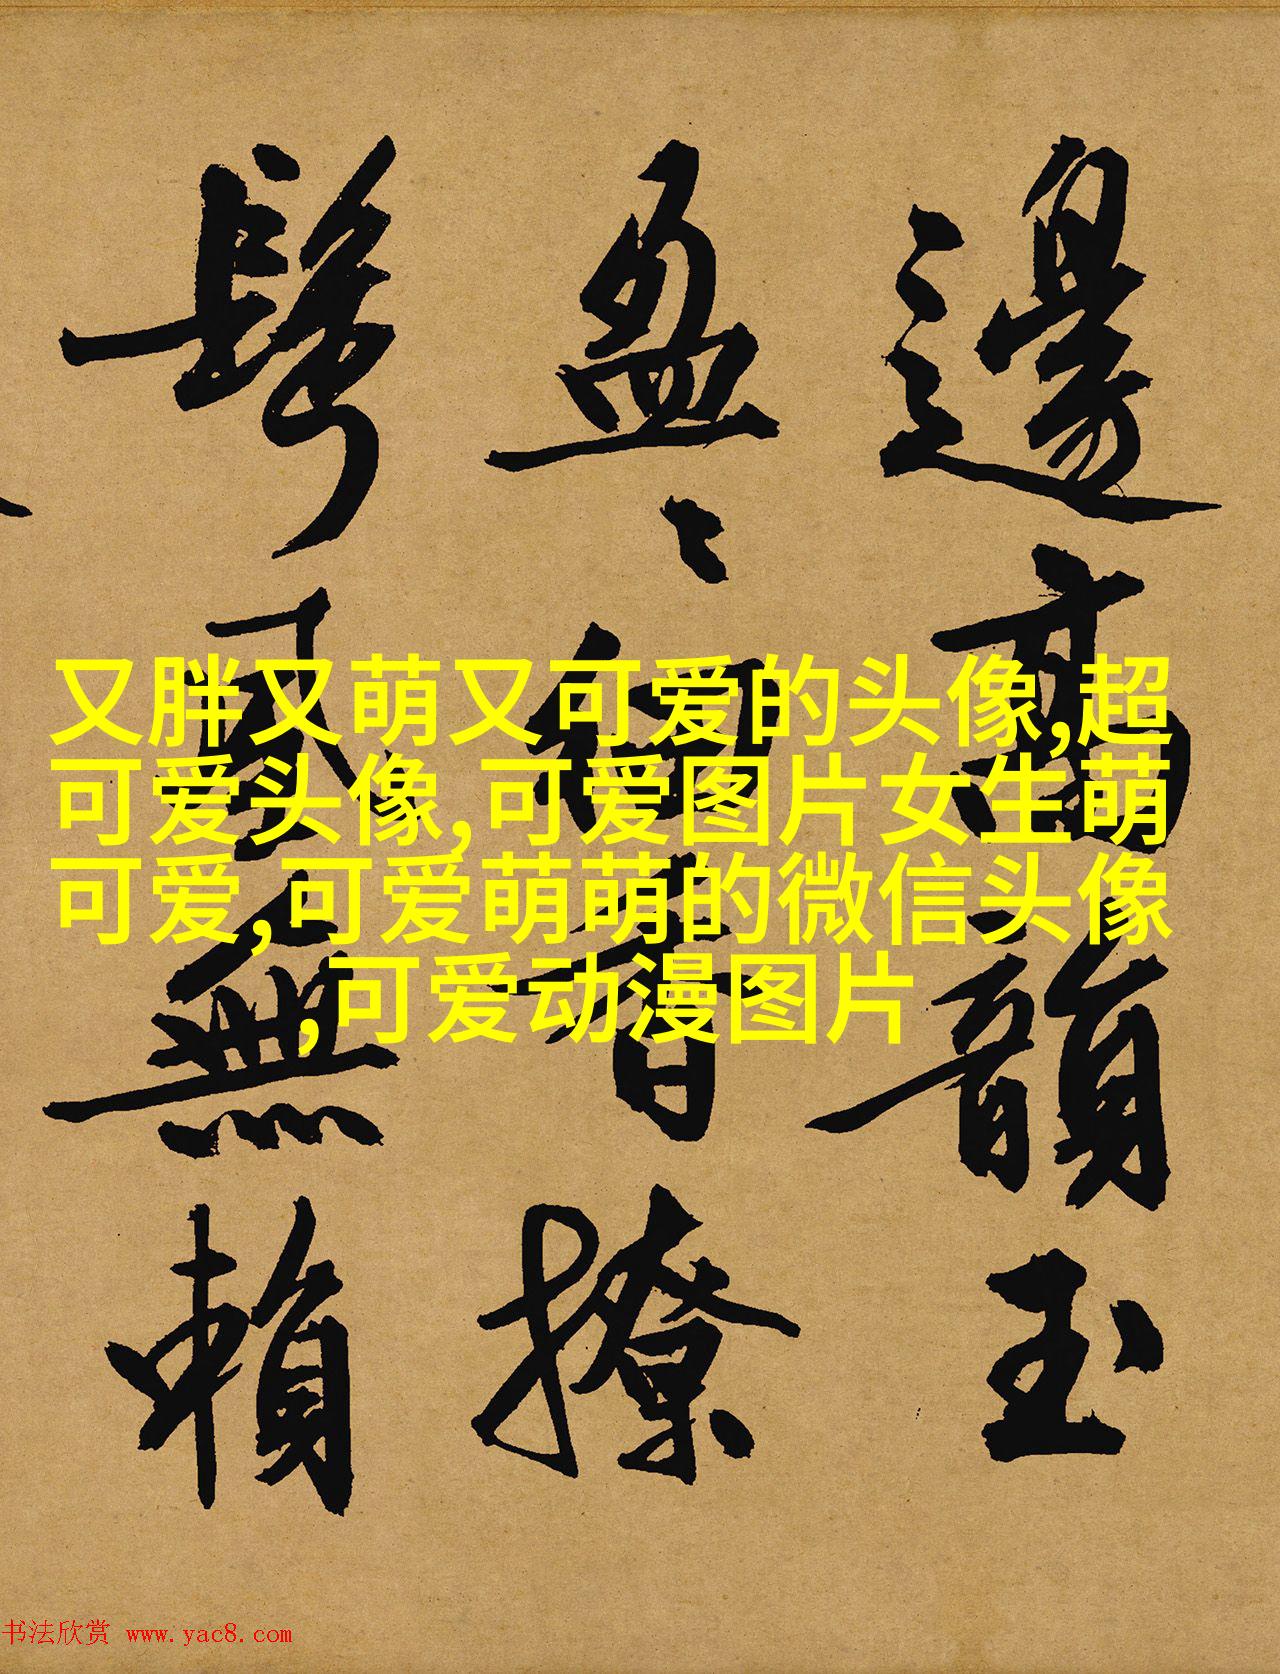 邊高韻玉
盈〻細香撩
風無賴
又胖又萌又可爱的头像,超
可爱头像,可爱图片女生萌
可爱,可爱萌萌的微信头像
,可爱动漫图片
书法欣赏 www.yac8.com